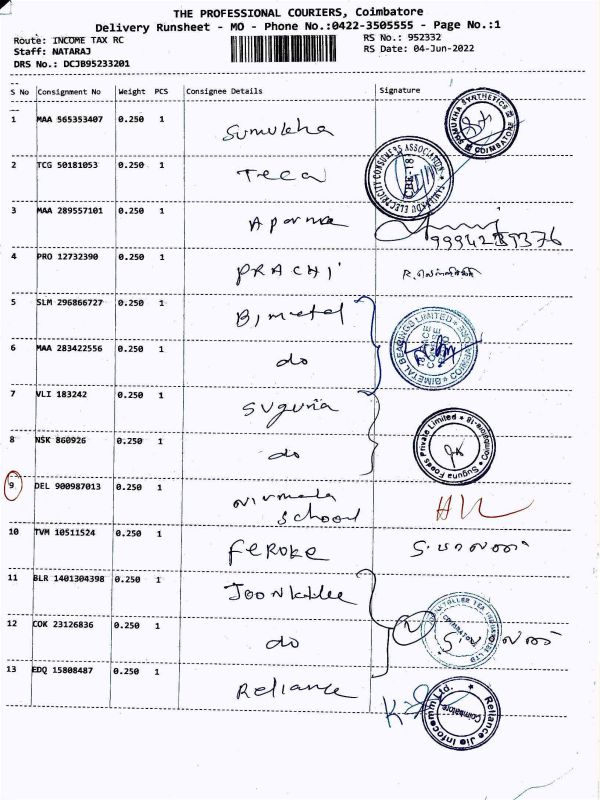 THE PROFESSIONAL COURIERS, Coimbatore
Delivery Runsheet - MO - Phone No.:0422-3505555 - Page No.:1
Route: INCOME TAX RC
RS No.: 952332
Staff: NATARAJ
RS Date: 04-Jun-2022
DRS No.: DCJB95233201
S No Consignment No Weight PCS Consignee Details Signature
1 MAA 565353407 0.250 1 Sumukha
SUMUKHA SYNTHETICS COIMBATORE
2 TCG 50181053 0.250 1 Teca
TAMILNADU ELECTRICITY CONSUMERS ASSOCIATION CBE-18
3 MAA 289557101 0.250 1 Aparna
4 PRO 12732390 0.250 1 PRACHI
5 SLM 296866727 0.250 1 Bimetal
BIMETAL BEARINGS LIMITED
6 MAA 283422556 0.250 1 do
7 VLI 183242 0.250 1 Suguna
Suguna Foods Private Limited Coimbatore-18
8 NSK 860926 0.250 1 do
9 DEL 900987013 0.250 1 Nirmala
School
10 TVM 10511524 0.250 1 Feroke
11 BLR 1401304398 0.250 1 Joonktollee
12 COK 23126836 0.250 1 do
13 EDQ 15808487 0.250 1 Reliance
Reliance Jio Infocomm Ltd. Coimbatore